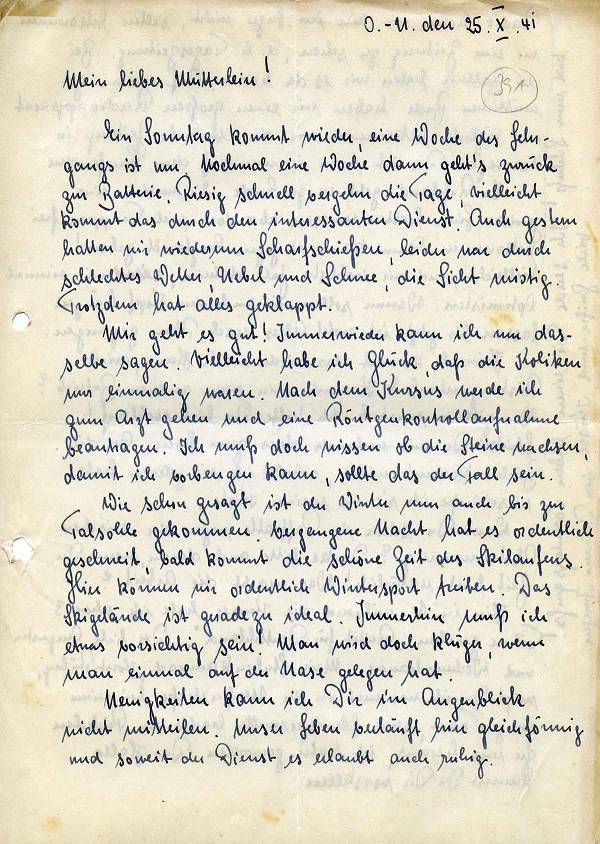 O.-U. den 25. X. 41
Mein liebes Mütterlein!
391
Ein Sonntag kommt wieder, eine Woche des Lehr-
gangs ist um. Nochmal eine Woche dann geht's zurück
zur Batterie. Riesig schnell vergehn die Tage, vielleicht
kommt das durch den interessanten Dienst. Auch gestern
hatten wir wiederum Scharfschießen, leider war durch
schlechtes Wetter, Nebel und Schnee, die Sicht mistig.
Trotzdem hat alles geklappt.
Mir geht es gut! Immerwieder kann ich nur das-
selbe sagen. Vielleicht habe ich Glück, daß die Koliken
nur einmalig waren. Nach dem Kursus werde ich
zum Arzt gehen und eine Röntgenkontrollaufnahme
beantragen. Ich muß doch wissen ob die Steine wachsen,
damit ich vorbeugen kann, sollte das der Fall sein.
Wie schon gesagt ist der Winter nun auch bis zur
Talsohle gekommen. Vergangene Nacht hat es ordentlich
geschneit, bald kommt die schöne Zeit des Skilaufens.
Hier können wir ordentlich Wintersport treiben. Das
Skigelände ist geradezu ideal. Immerhin muß ich
etwas vorsichtig sein! Man wird doch klüger, wenn
man einmal auf der Nase gelegen hat.
Neuigkeiten kann ich Dir im Augenblick
nicht mitteilen. Unser Leben verläuft hier gleichförmig
und soweit der Dienst es erlaubt auch ruhig.